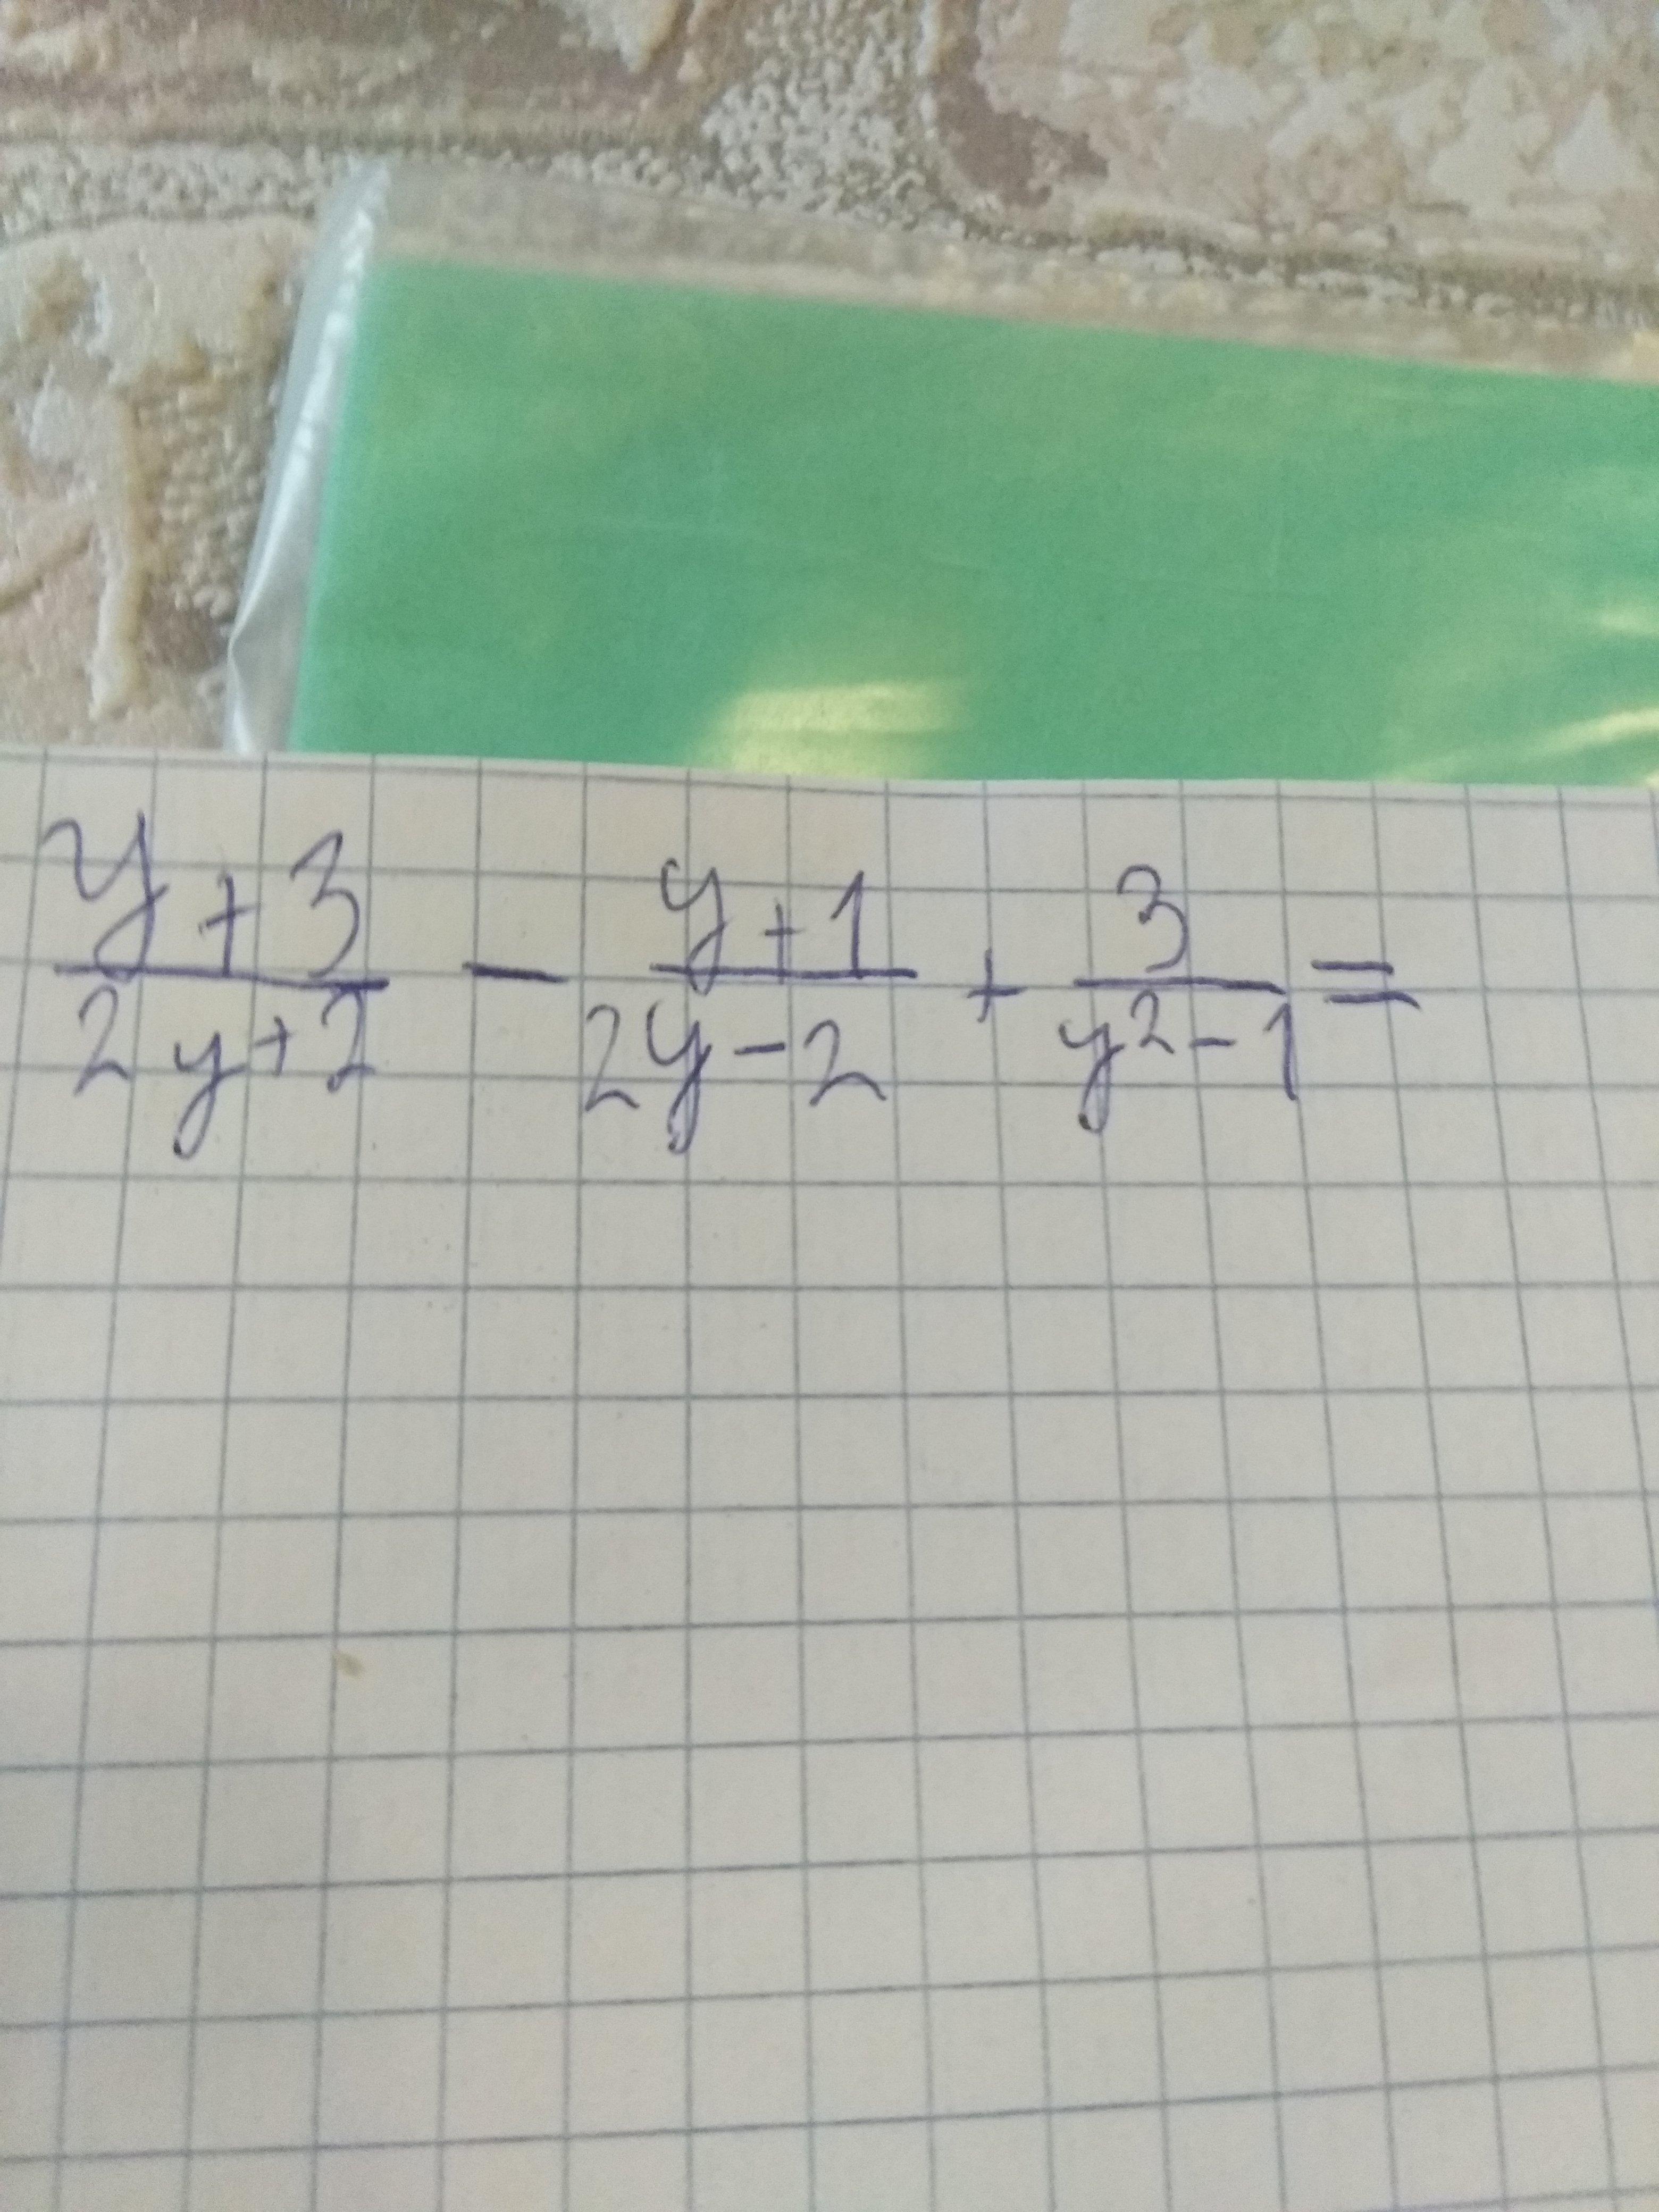 y+3/2y+2 - y+1/2y-2 + 3/y²-1 =